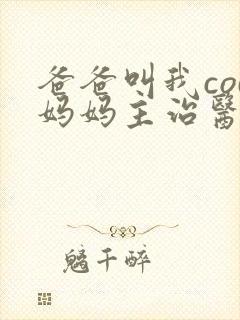 爸爸叫我co
妈妈主治醫
千醉